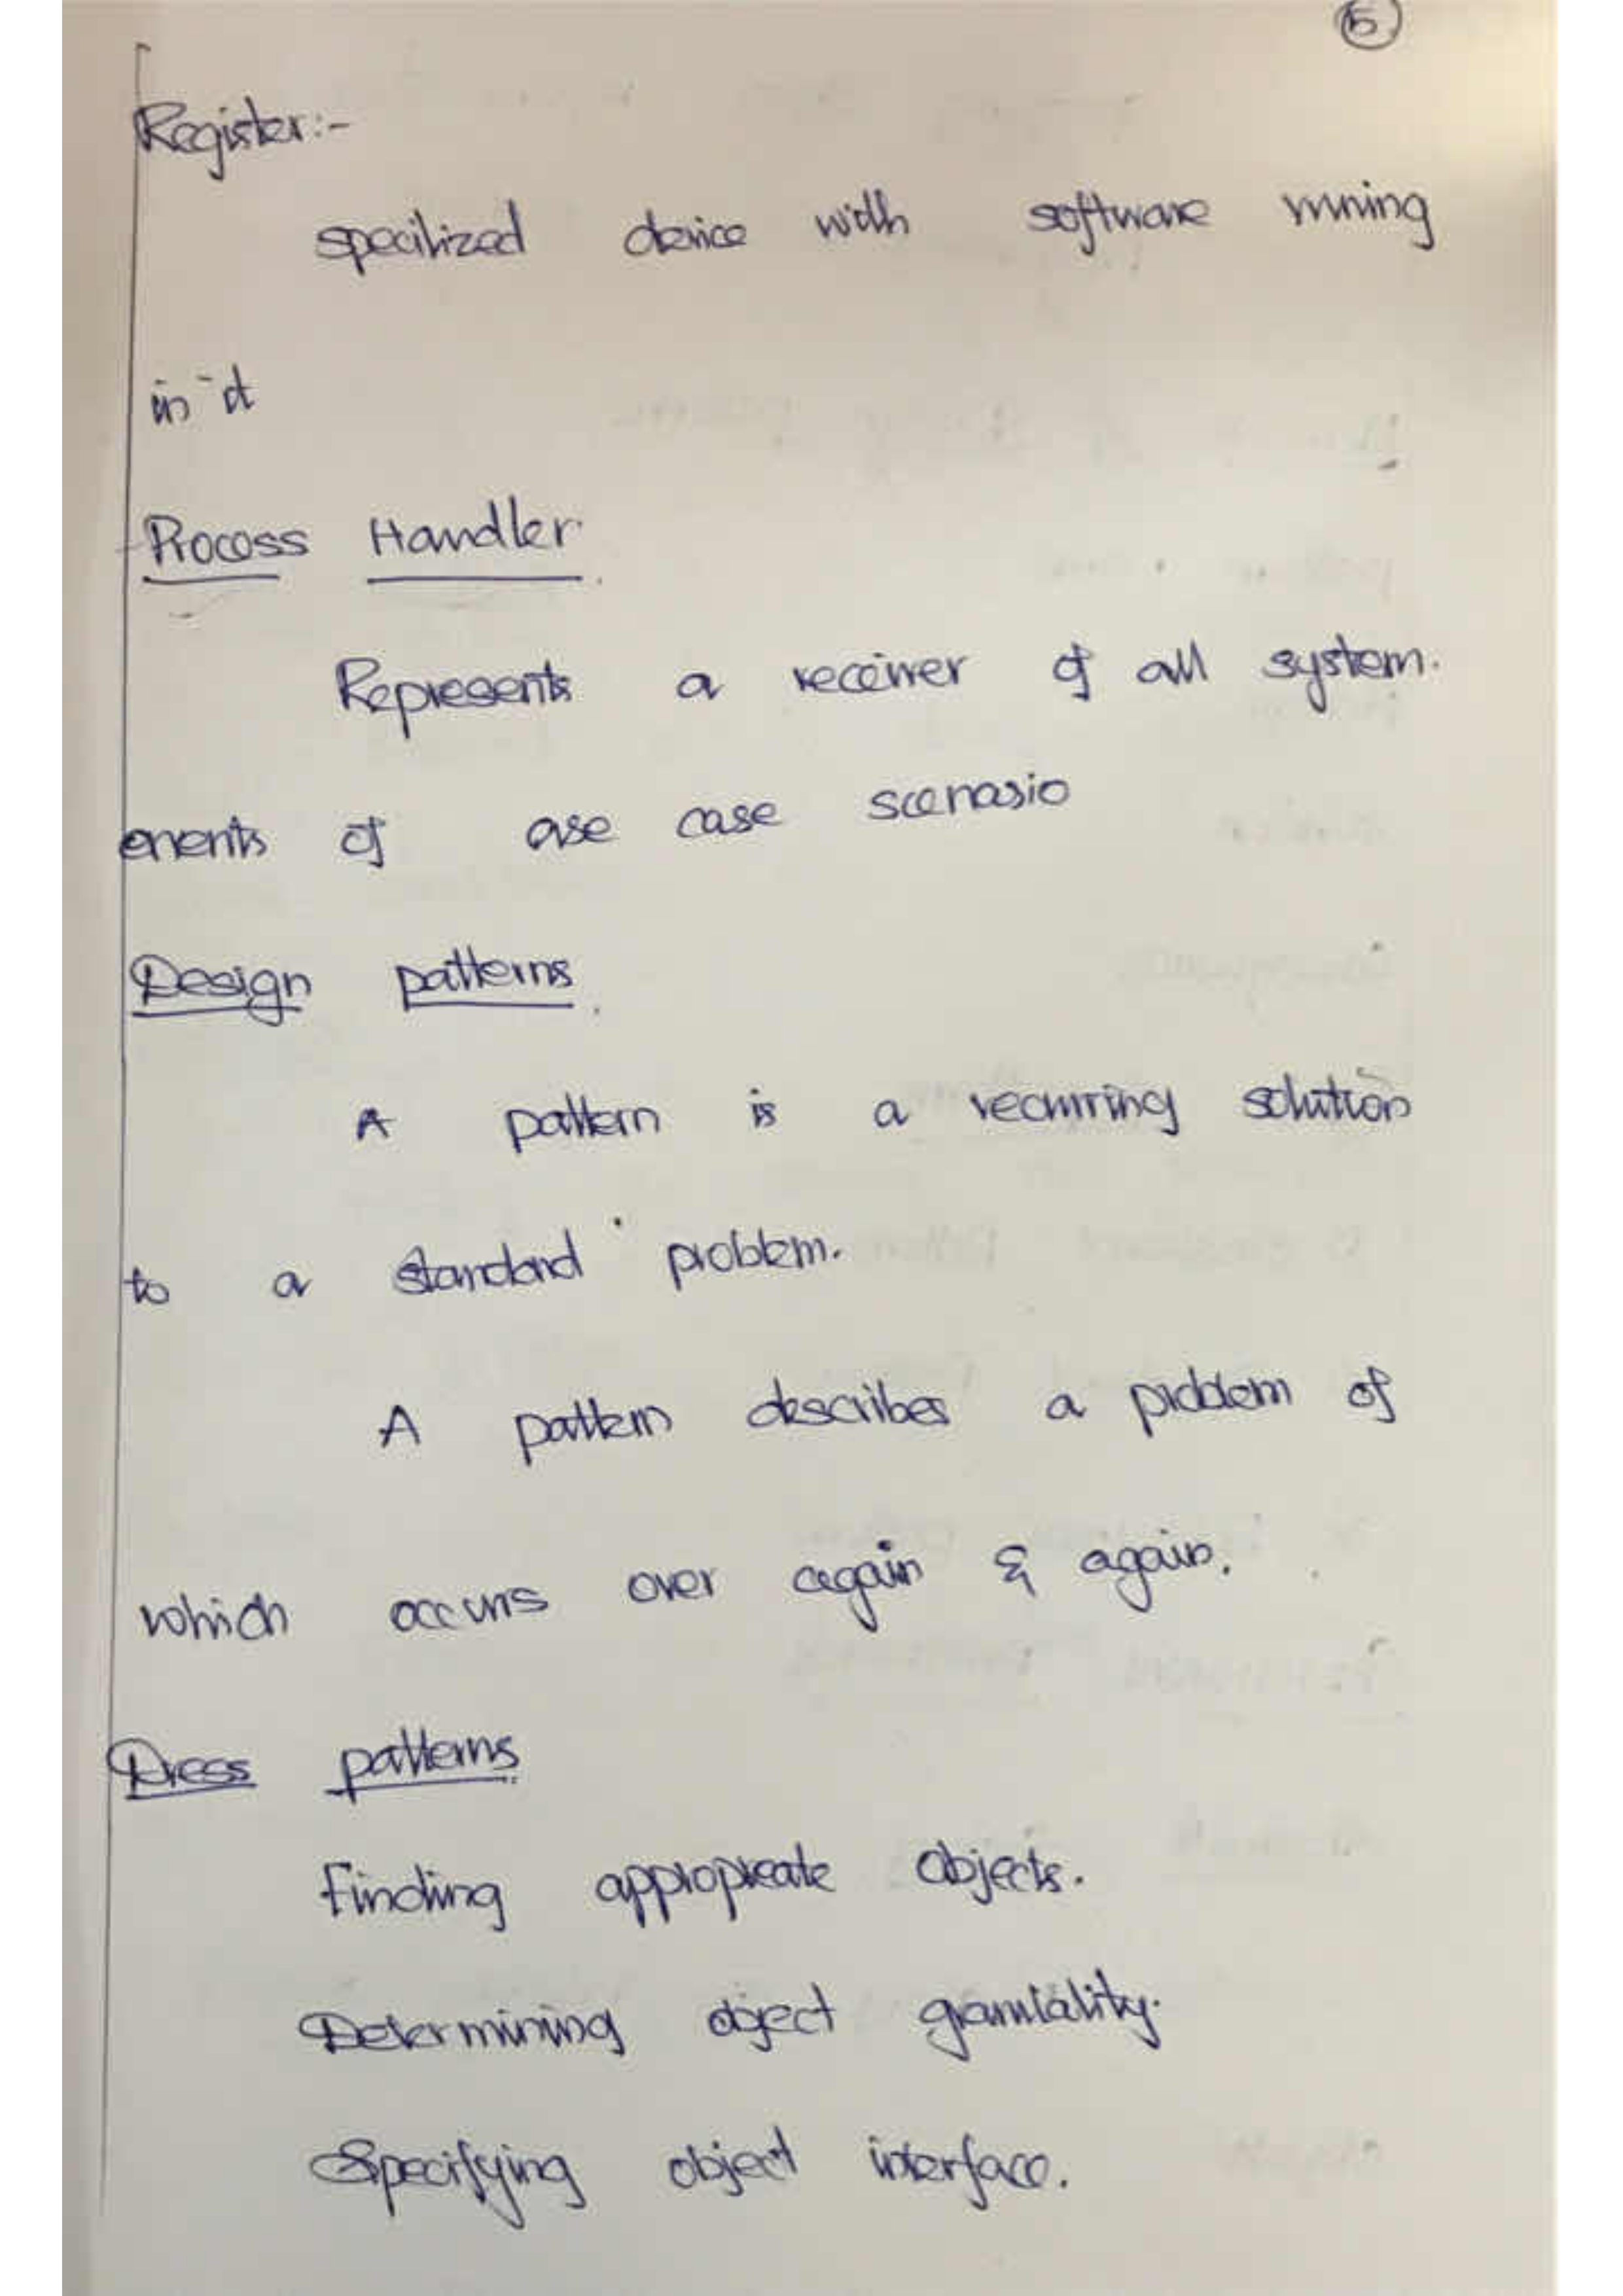 5
Register:-
specilized device with software runing
in it
Process Handler.
Represents a receiver of all system.
events of use case scenario
Design patterns.
A pattern is a recurring solution
to a standard problem.
A pattern describes a problem of
which occurs over again & again.
Dress patterns.
Finding appropreate objects.
Determining object granulality.
Specifying object interface.